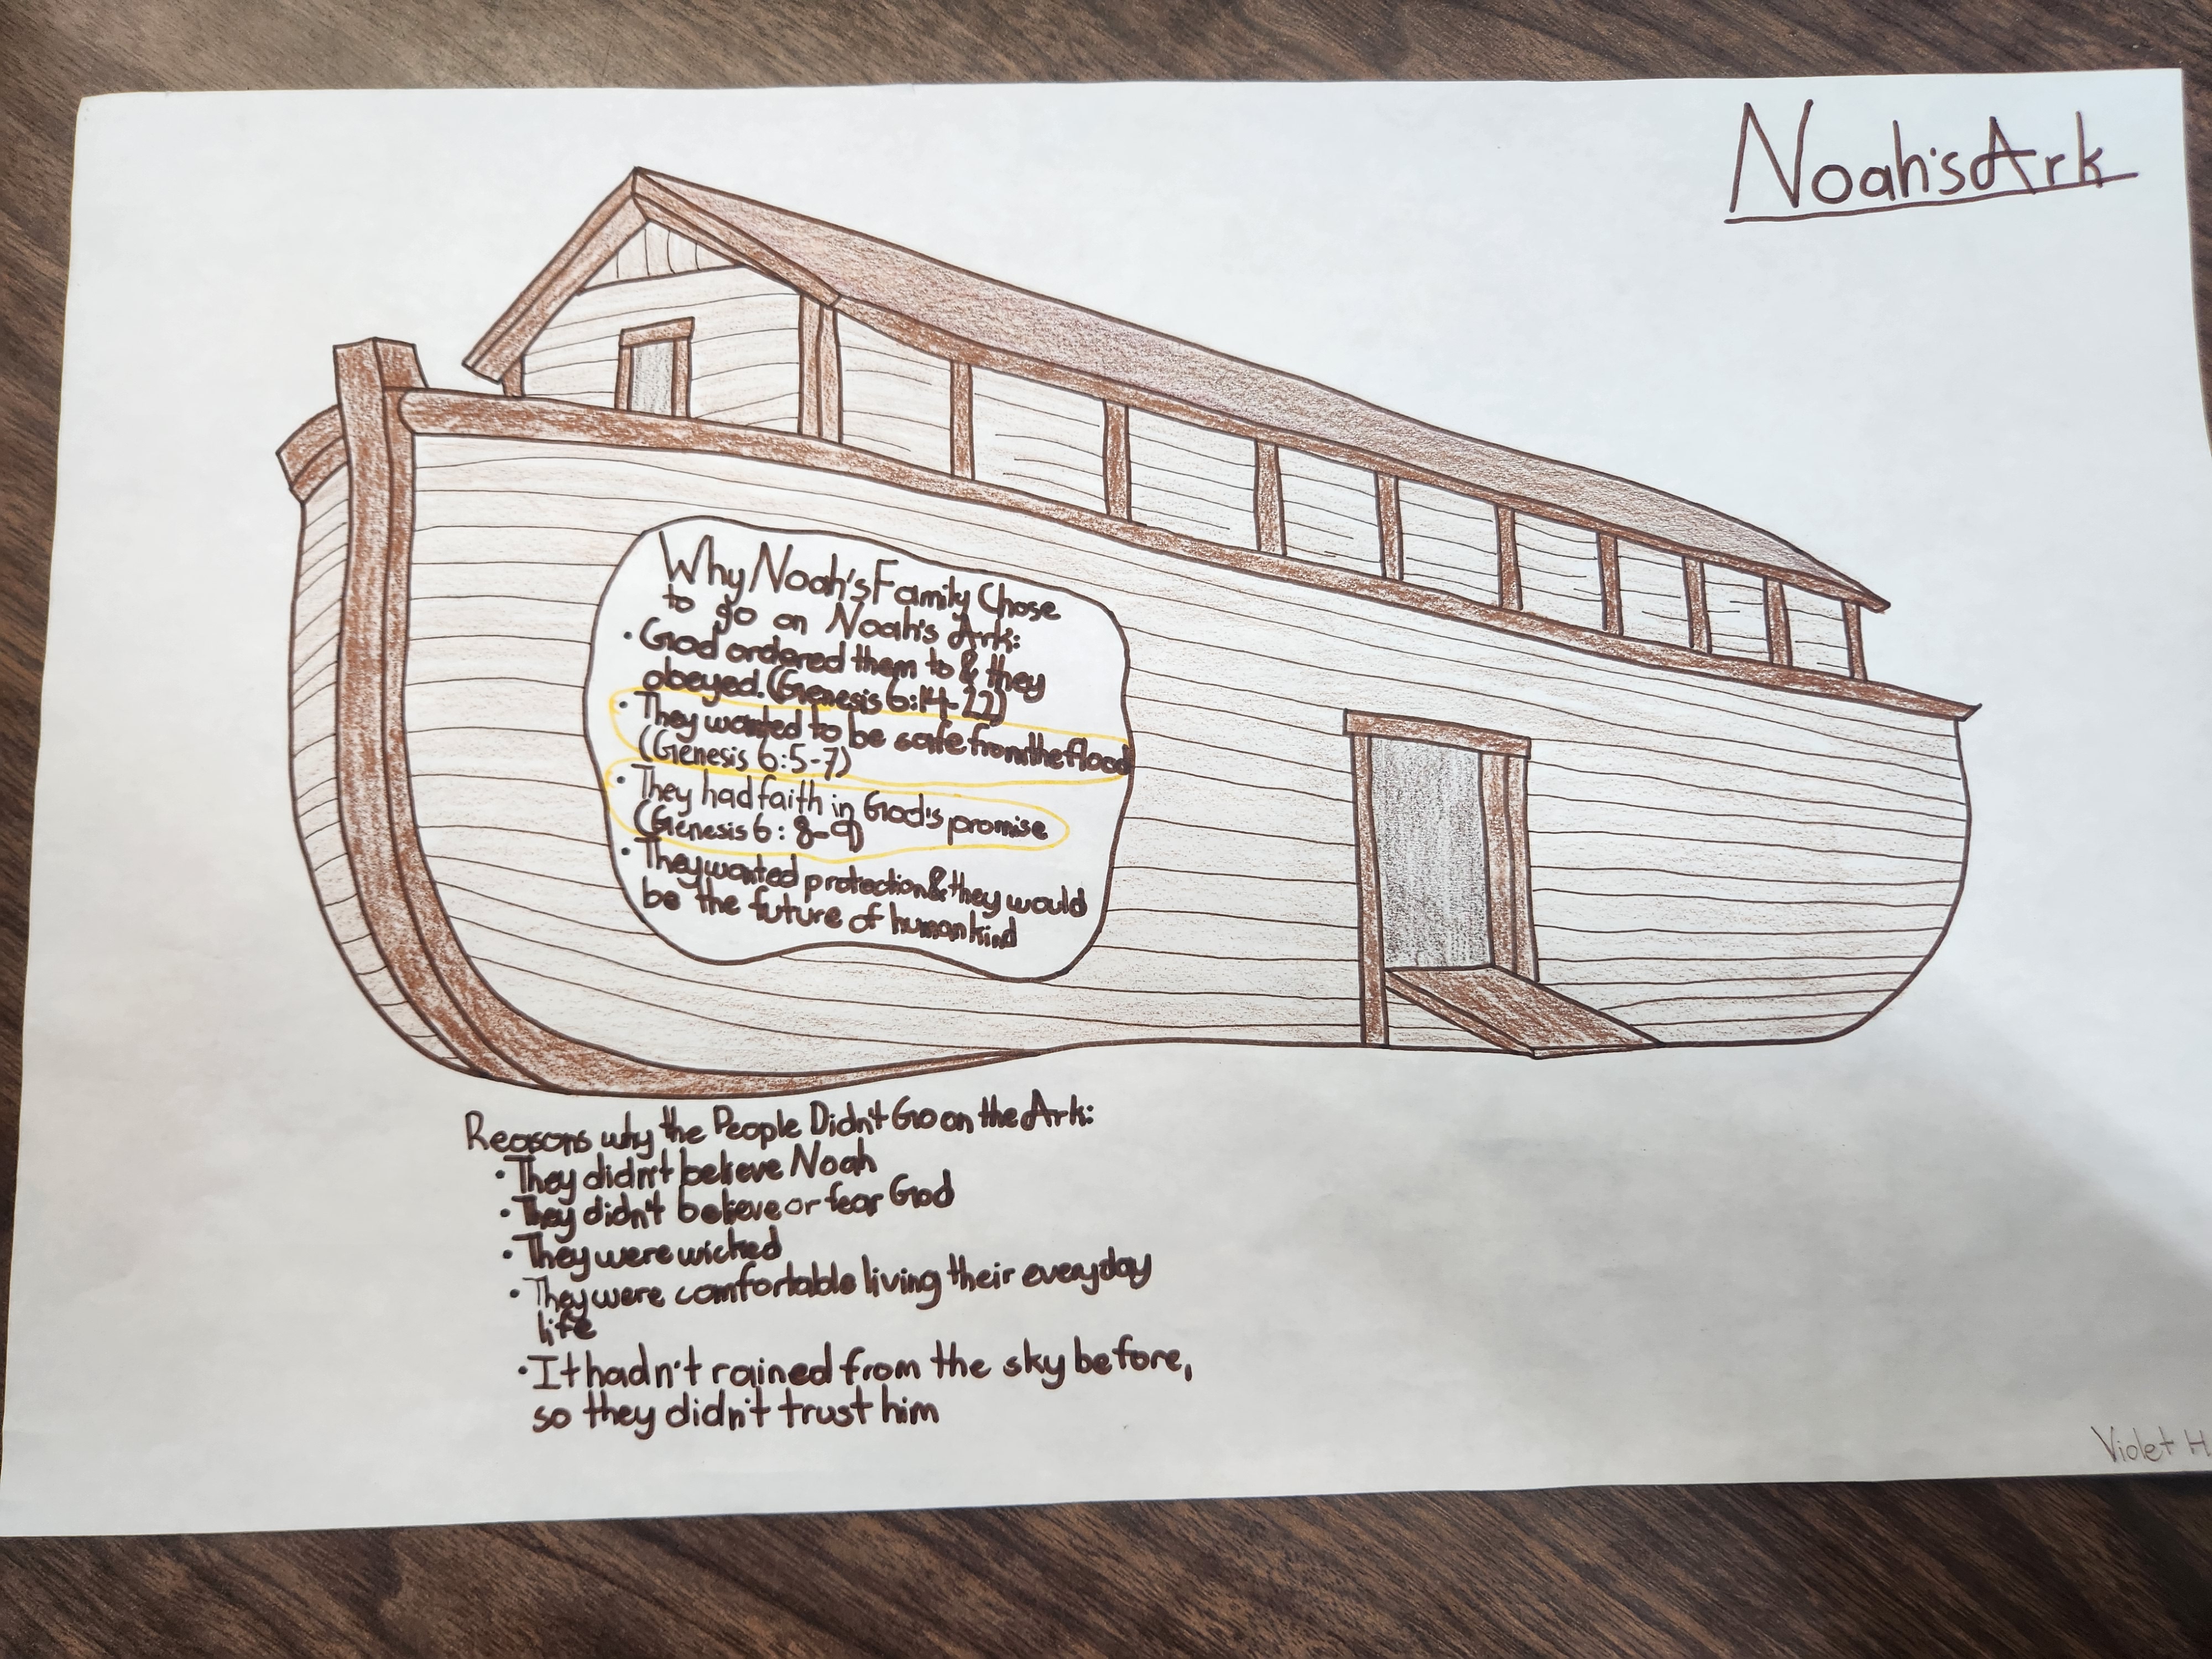 Noah's Ark
Why Noah's Family Chose
to go on Noah's Ark:
• God ordered them to & they
obeyed. (Genesis 6:14-22)
• They wanted to be safe from the flood
(Genesis 6:5-7)
• They had faith in God's promise
(Genesis 6:8-9)
• They wanted protection & they would
be the future of humankind
Reasons why the People Didn't Go on the Ark:
• They didn't believe Noah
• They didn't believe or fear God
• They were wicked
• They were comfortable living their everyday
life
• It hadn't rained from the sky before,
so they didn't trust him
Violet H